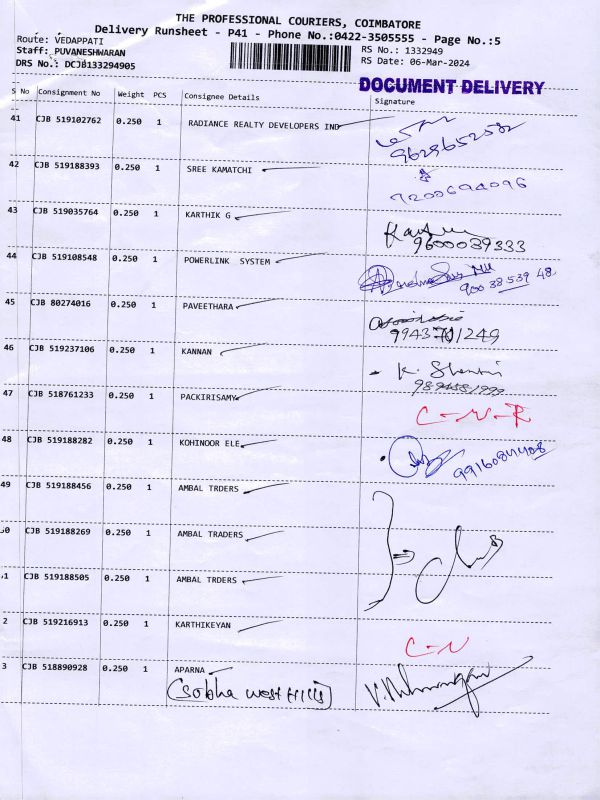 THE PROFESSIONAL COURIERS, COIMBATORE
Delivery Runsheet - P41 - Phone No.:0422-3505555 - Page No.:5
Route: VEDAPPATI RS No.: 1332949
Staff: PUVANESHWARAN RS Date: 06-Mar-2024
DRS No.: DCJB133294905
DOCUMENT DELIVERY
S No Consignment No Weight PCS Consignee Details Signature
41 CJB 519102762 0.250 1 RADIANCE REALTY DEVELOPERS IND
9629652582
42 CJB 519188393 0.250 1 SREE KAMATCHI
7200694096
43 CJB 519035764 0.250 1 KARTHIK G
9600039333
44 CJB 519108548 0.250 1 POWERLINK SYSTEM
90038 539 48
45 CJB 80274016 0.250 1 PAVEETHARA
46 CJB 519237106 0.250 1 KANNAN
47 CJB 518761233 0.250 1 PACKIRISAMY
C-N-R
48 CJB 519188282 0.250 1 KOHINOOR ELE
49 CJB 519188456 0.250 1 AMBAL TRDERS
50 CJB 519188269 0.250 1 AMBAL TRADERS
51 CJB 519188505 0.250 1 AMBAL TRDERS
2 CJB 519216913 0.250 1 KARTHIKEYAN
C-N
3 CJB 518890928 0.250 1 APARNA
(Sobha West Hills)